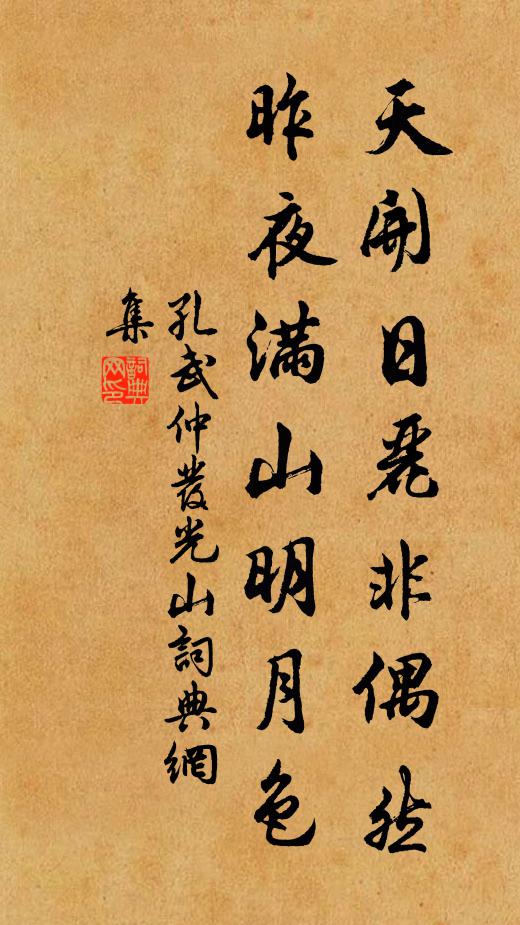 天開日麗非偶然
昨夜滿山明月色
孔武仲發光山詞典網
集
詞典
网印